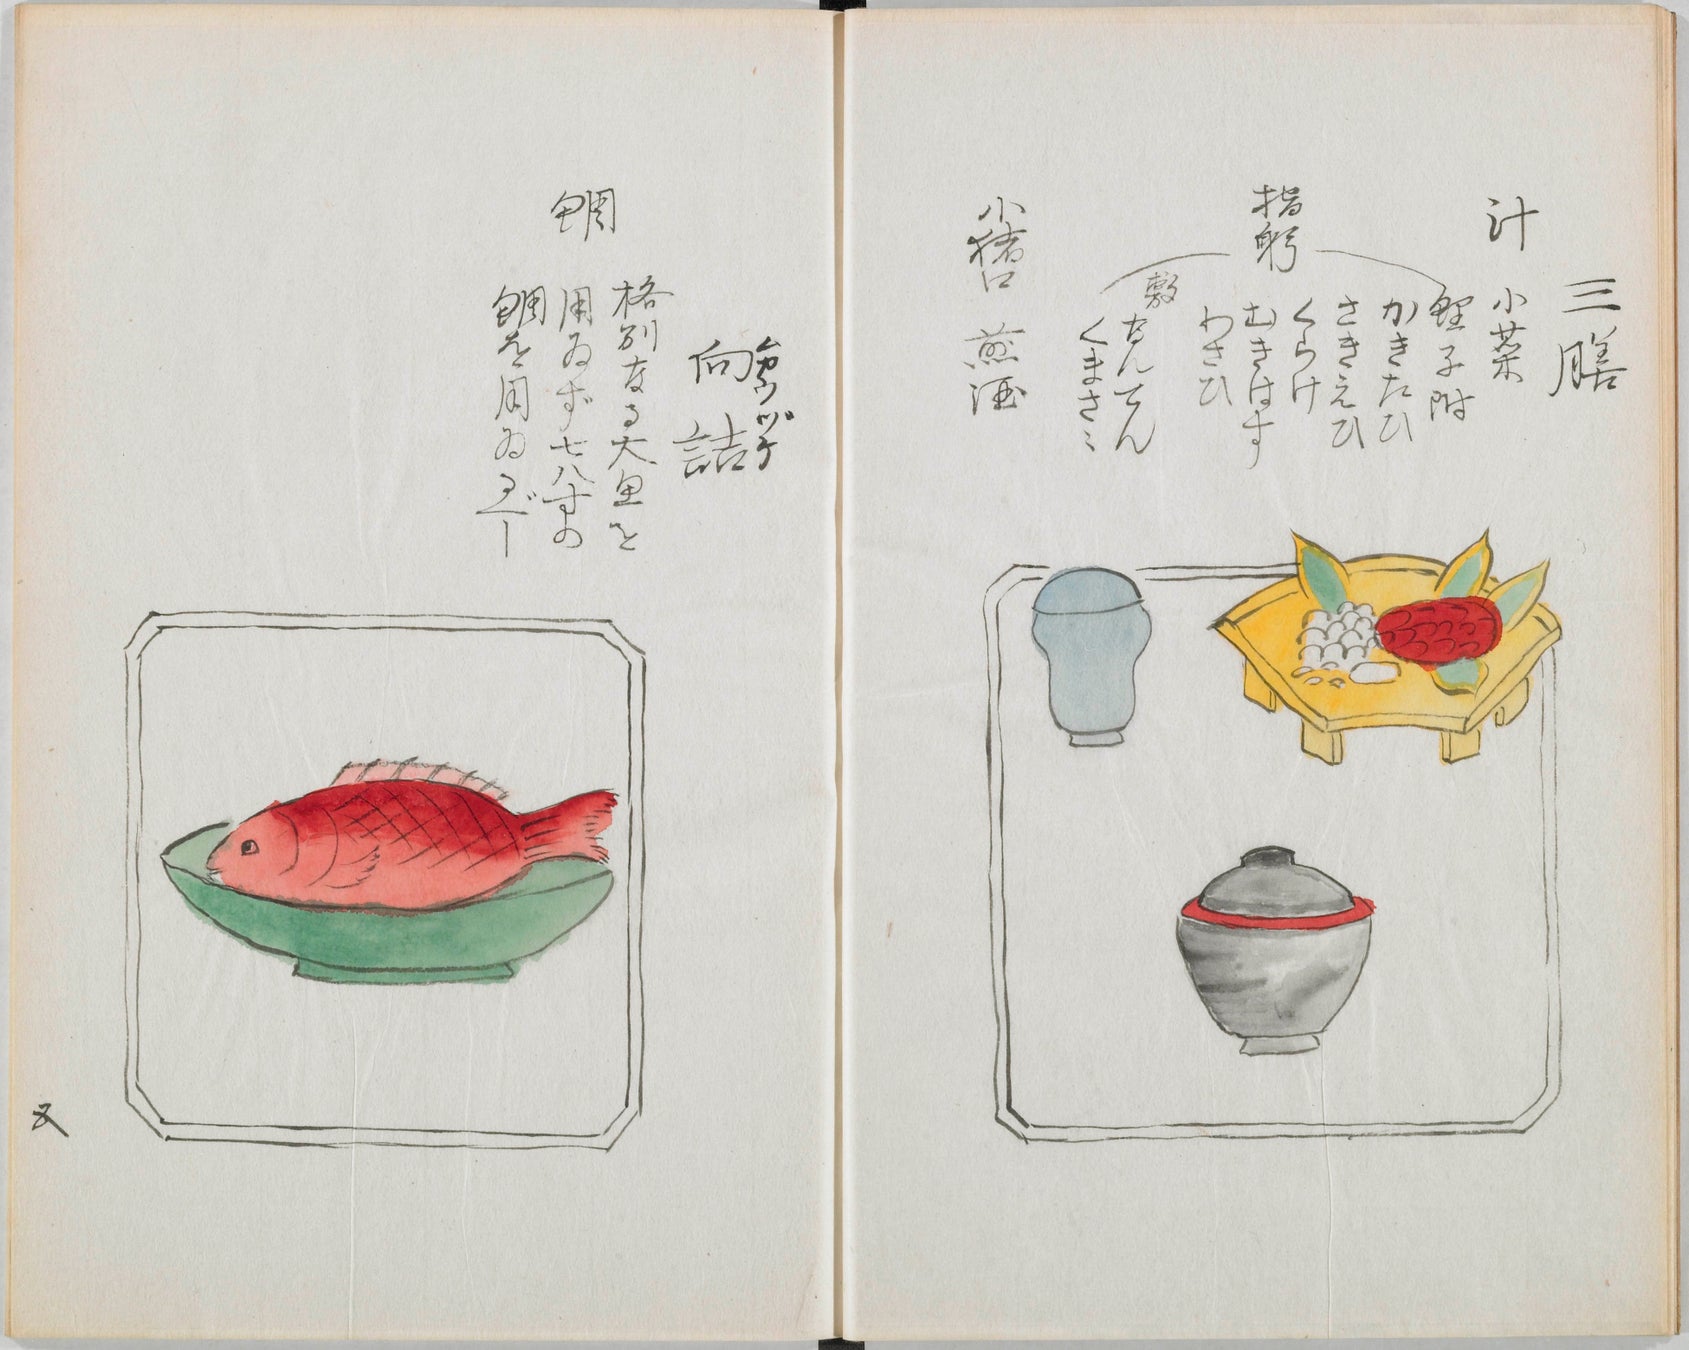 三膳
汁 小菜
指躬
鯉子附
かきたひ
さきえひ
くらけ
むきはす
わさひ
敷 なんてん
くまさゝ
小猪口 煎酒
ムカウヅケ
向詰
鯛 格別なる大魚を
用ゐず七八寸の
鯛を用ゐるべし
又